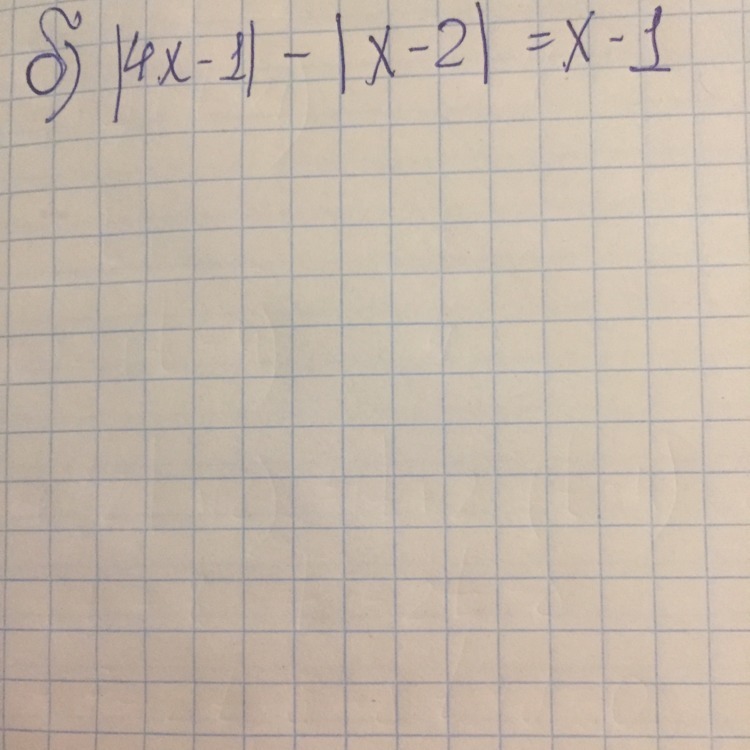 б) |4x-1| - |x-2| = x-1